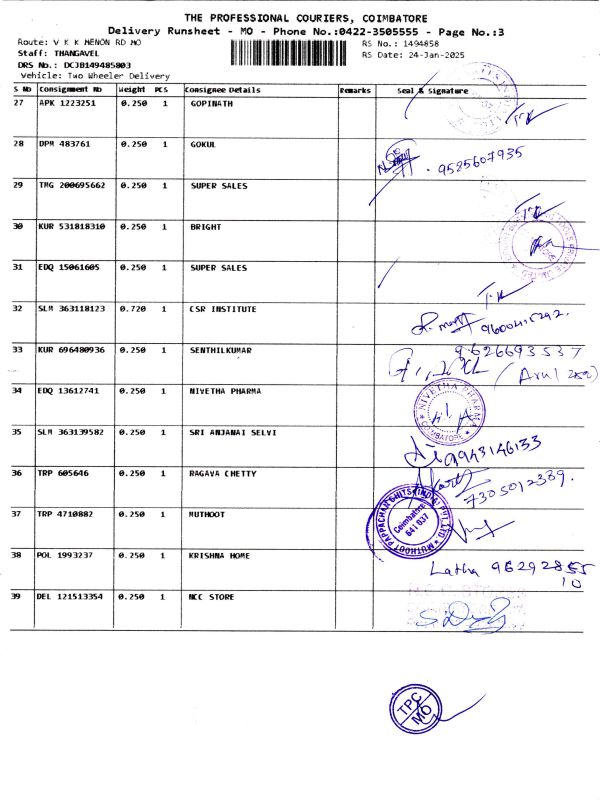 THE PROFESSIONAL COURIERS, COIMBATORE
Delivery Runsheet - MO - Phone No.:0422-3505555 - Page No.:3
Route: V K K MENON RD MO
RS No.: 1494858
Staff: THANGAVEL
RS Date: 24-Jan-2025
DRS No.: DCJB149485803
Vehicle: Two Wheeler Delivery
S No Consignment No Weight PCS Consignee Details Remarks Seal & signature
27 APK 1223251 0.250 1 GOPINATH
28 DPM 483761 0.250 1 GOKUL
9585607935
29 TMG 200695662 0.250 1 SUPER SALES
30 KUR 531818310 0.250 1 BRIGHT
31 EDQ 15061605 0.250 1 SUPER SALES
32 SLM 363118123 0.720 1 CSR INSTITUTE
33 KUR 696480936 0.250 1 SENTHILKUMAR
9626693537
34 EDQ 13612741 0.250 1 NIVETHA PHARMA
NIVETHA PHARMA
COIMBATORE
35 SLM 363139582 0.250 1 SRI ANJANAI SELVI
9943146133
36 TRP 605646 0.250 1 RAGAVA CHETTY
7305012389.
37 TRP 4710882 0.250 1 MUTHOOT
MUTHOOT PAPPACHAN CHITS (INDIA) PVT.LTD
Coimbatore
641 037
38 POL 1993237 0.250 1 KRISHNA HOME
Latha 96292855
10
39 DEL 121513354 0.250 1 NCC STORE
TPC
MO